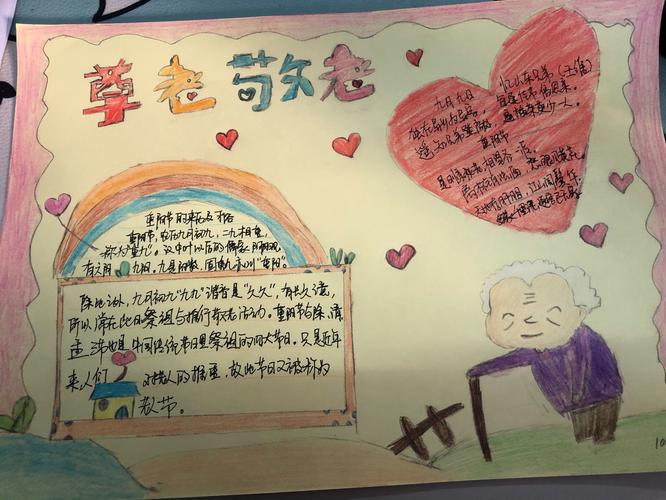 尊老敬老
九月九日忆山东兄弟（王维）
独在异乡为异客，每逢佳节倍思亲。
遥知兄弟登高处，遍插茱萸少一人。
重阳节
重阳节的来历及习俗
重阳节，农历九月初九，二九相重，
称为"重九"。汉中叶以后的儒家阴阳观，
有六阴九阳。九是阳数，固重九亦叫"重阳"。
除此之外，九月初九"九九"谐音是"久久"，有长久之意，
所以常在此日祭祖与推行敬老活动。重阳节与除、清、
盂三节也是中国传统节日里祭祖的四大节日。只是近年
来人们对老人的推重，故此节日又被称为
老人节。
10